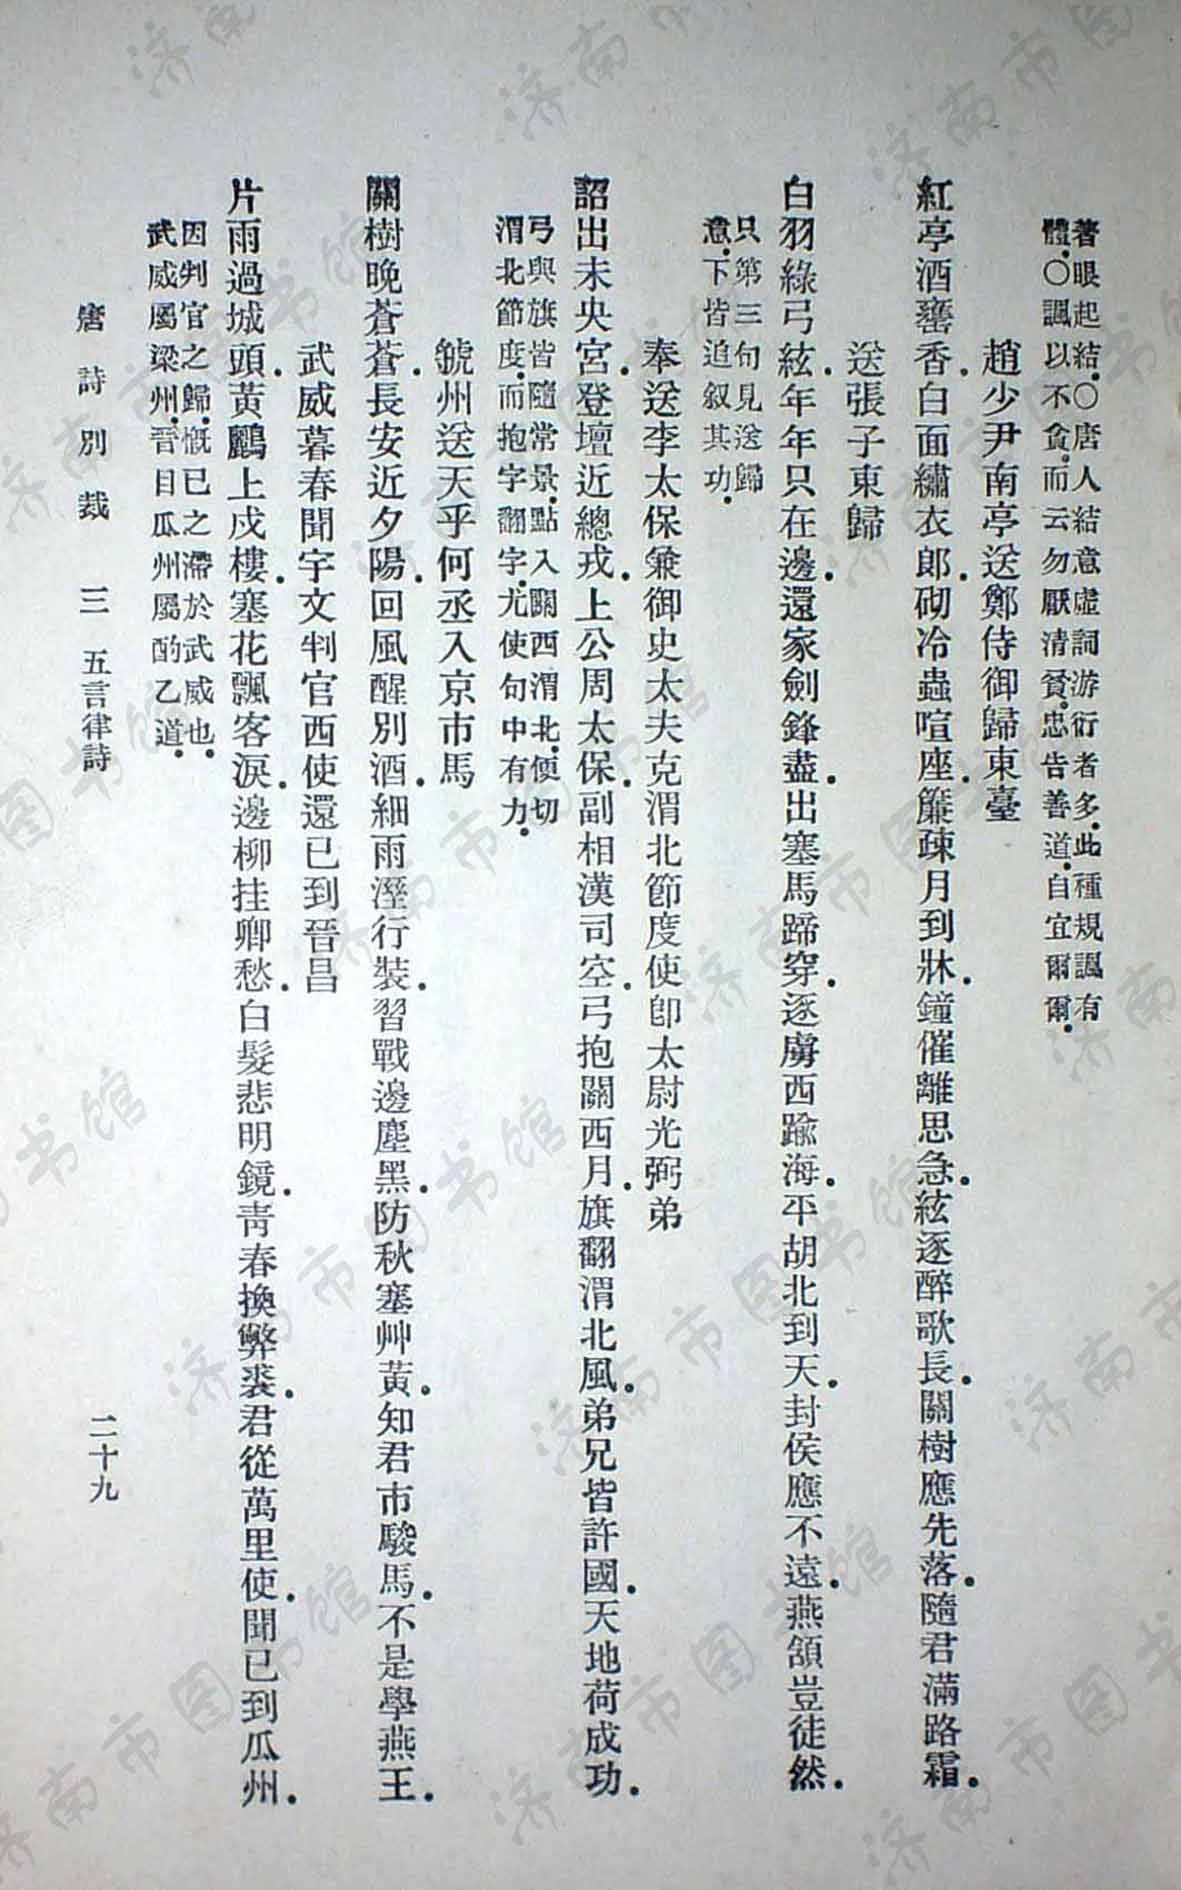 著眼起結.〇唐人結意虛詞游衍者多.此種規諷有
體.〇諷以不貪.而云勿厭清貧.忠告善道.自宜爾爾.
趙少尹南亭送鄭侍御歸東臺
紅亭酒甕香.白面繡衣郎.砌冷蟲喧座.簾疎月到牀.鐘催離思急.絃逐醉歌長.關樹應先落.隨君滿路霜.
送張子東歸
白羽綠弓絃.年年只在邊.還家劍鋒盡.出塞馬蹄穿.逐虜西踰海.平胡北到天.封侯應不遠.燕頷豈徒然.
只第三句見送歸
意.下皆追叙其功.
奉送李太保兼御史大夫充渭北節度使卽太尉光弼弟
詔出未央宮.登壇近總戎.上公周太保.副相漢司空.弓抱關西月.旗翻渭北風.弟兄皆許國.天地荷成功.
弓與旗皆隨常景.點入關西渭北.便切
渭北節度.而抱字翻字.尤使句中有力.
虢州送天平何丞入京市馬
關樹晚蒼蒼.長安近夕陽.回風醒別酒.細雨溼行裝.習戰邊塵黑.防秋塞艸黃.知君市駿馬.不是學燕王.
武威暮春聞宇文判官西使還已到晉昌
片雨過城頭.黃鸝上戍樓.塞花飄客淚.邊柳挂鄉愁.白髮悲明鏡.靑春換弊裘.君從萬里使.聞已到瓜州.
因判官之歸.慨已之滯於武威也.
武威屬梁州.晉目瓜州屬酌乙道.
唐詩別裁 三 五言律詩 二十九
济南市图书馆